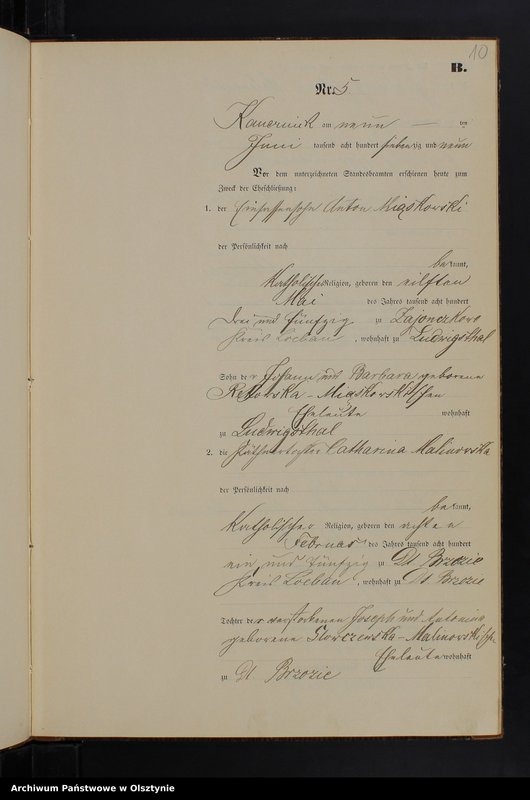 10
B.
Nr. 5
Kauernik am neun — ten
Juni tausend acht hundert siebenzig und neun
Vor dem unterzeichneten Standesbeamten erschienen heute zum
Zweck der Eheschließung:
1. der Anton Miąskowski
der Persönlichkeit nach
bekannt,
katholischer Religion, geboren den eilften
Mai des Jahres tausend acht hundert
drei und fünfzig zu Zajonczkowo
Kreis Loebau, wohnhaft zu Ludwigsthal
Sohn der Johann und Barbara geborene
Miąskowski'schen
Eheleute wohnhaft
zu Ludwigsthal
2. die Käthnertochter Catharina Malinowska
der Persönlichkeit nach
bekannt,
katholischer Religion, geboren den achten
Februar des Jahres tausend acht hundert
ein und fünfzig zu Dt Brzozie
Kreis Loebau, wohnhaft zu Dt Brzozie
Tochter der verstorbenen Joseph und Antonina
geborene Malinowski'schen
Eheleute wohnhaft
zu Dt Brzozie
Archiwum Państwowe w Olsztynie